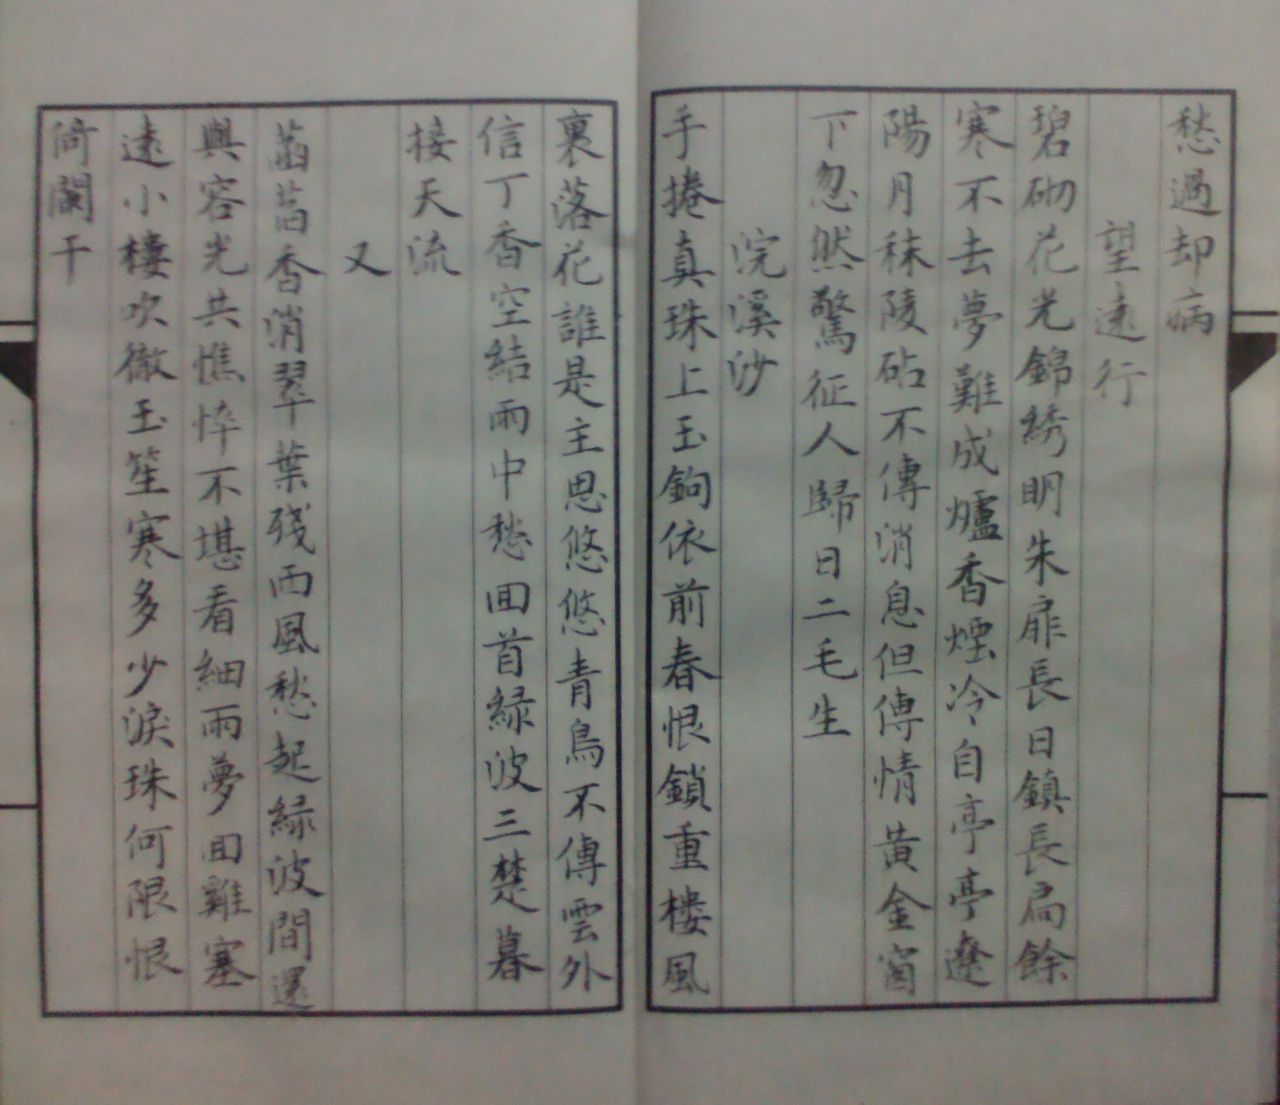 愁過却病
望遠行
碧砌花光錦綉明朱扉長日鎮長扃餘
寒不去夢難成爐香煙冷自亭亭遼
陽月秣陵砧不傳消息但傳情黄金窗
下忽然驚征人歸日二毛生
浣溪沙
手捲真珠上玉鉤依前春恨鎖重樓風
裏落花誰是主思悠悠青鳥不傳雲外
信丁香空結雨中愁回首緑波三楚暮
接天流
又
菡萏香消翠葉殘西風愁起緑波間還
與容光共憔悴不堪看細雨夢回雞塞
遠小樓吹徹玉笙寒多少淚珠何限恨
倚闌干